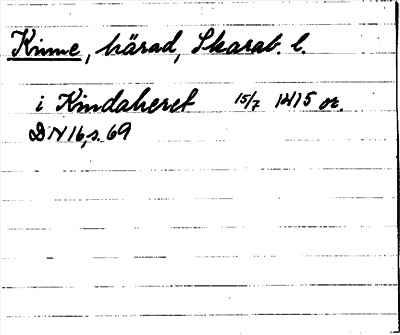 Kinne, härad, Skarab. l.
i Kindaheret 15/7 1415 or.
DN 16, s. 69